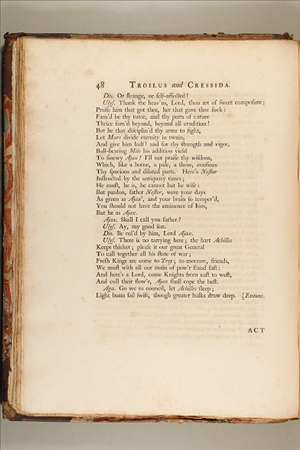 48 TROILUS and CRESSIDA.
Dio. Or strange, or self-affected!
Ulys. Thank the heav'ns, Lord, thou art of sweet composure;
Praise him that got thee, her that gave thee suck:
Fam'd be thy tutor, and thy parts of nature
Thrice fam'd beyond, beyond all erudition!
But he that disciplin'd thy arms to fight,
Let Mars divide eternity in twain,
And give him half! and for thy strength and vigor,
Bull-bearing Milo his addition yield
To sinewy Ajax! I'll not praise thy wisdom,
Which, like a bourn, a pale, a shore, confines
Thy spacious and dilated parts. Here's Nestor
Instructed by the antiquary times;
He must, he is, he cannot but be wise:
But pardon, father Nestor, were your days
As green as Ajax', and your brain so temper'd,
You should not have the eminence of him,
But be as Ajax.
Ajax. Shall I call you father?
Ulys. Ay, my good son.
Dio. Be rul'd by him, Lord Ajax.
Ulys. There is no tarrying here; the hart Achilles
Keeps thicket; please it our great General
To call together all his state of war;
Fresh Kings are come to Troy; to-morrow, friends,
We must with all our main of pow'r stand fast:
And here's a Lord, come Knights from east to west,
And cull their flow'r, Ajax shall cope the best.
Aga. Go we to council, let Achilles sleep;
Light boats sail swift, though greater hulks draw deep. [Exeunt.
ACT